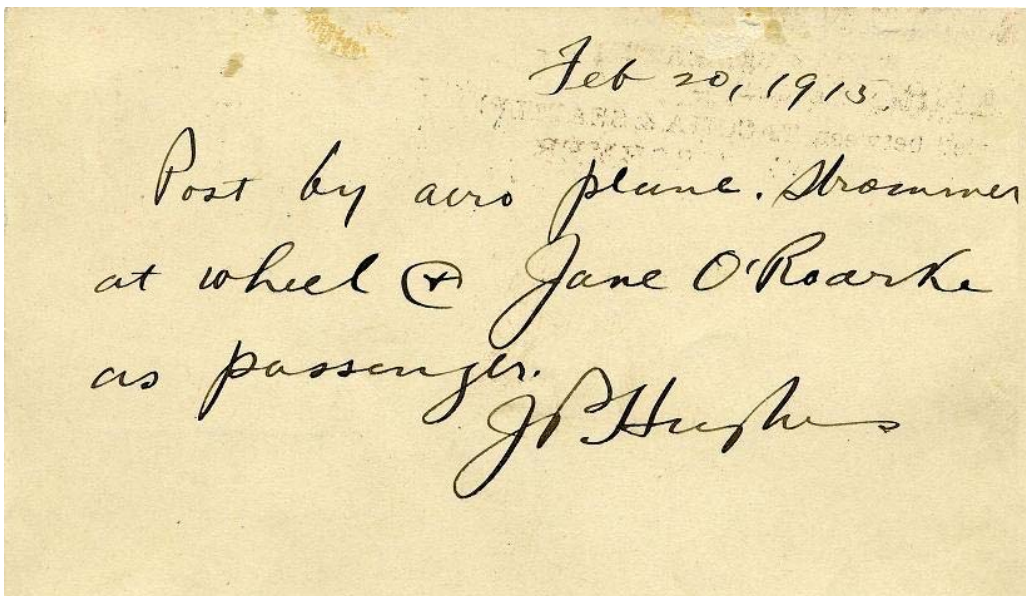 Feb 20, 1915.
Post by aero plane. Strommer
at wheel & Jane O'Roarke
as passenger.
JP Hughes